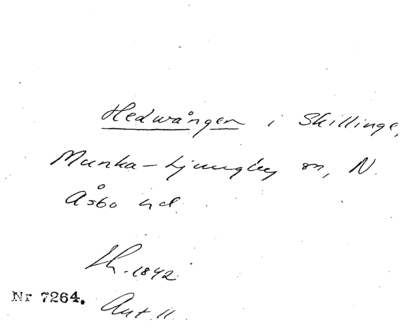 Hedvången i Skillinge,
Munka-Ljungby sn, N.
Åsbo hd.
Sk. 1842.
Nr 7264.
Ant. 11.